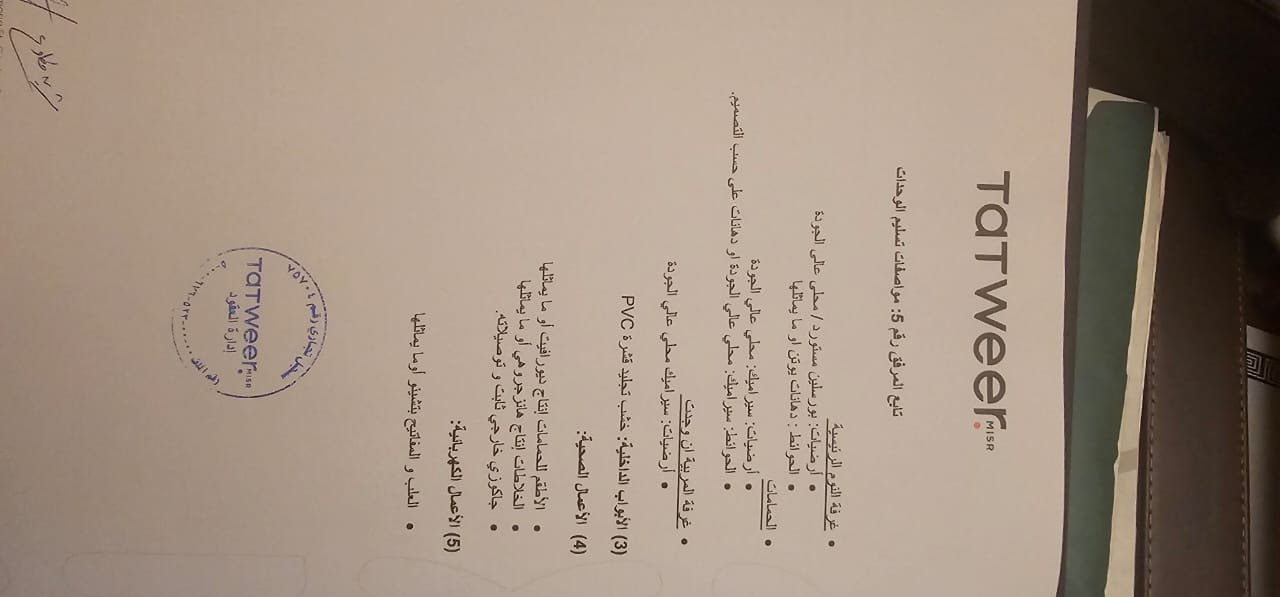 TATWEER.
MISR
تابع المرفق رقم 5: مواصفات تسليم الوحدات
• غرفة النوم الرئيسية
• أرضيات: بورسلين مستورد / محلى عالى الجودة
• الحوائط : دهانات بوتن او ما يماثلها
• الحمامات
• أرضيات: سيراميك: محلي عالي الجودة
• الحوائط: سيراميك: محلي عالي الجودة او دهانات على حسب التصميم.
• غرفة المربية ان وجدت
• أرضيات: سيراميك محلي عالي الجودة
(3) الأبواب الداخلية: خشب تجليد قشرة PVC
(4) الأعمال الصحية:
• الأطقم للحمامات إنتاج ديورافيت أو ما يماثلها
• الخلاطات إنتاج هانزجروهي أو ما يماثلها
• جاكوزي خارجي ثابت و توصيلاته.
(5) الأعمال الكهربائية:
• العلب و المفاتيح بتشينو أوما يماثلها
تجاري رقم ٧٥٧٠٤
TATWEER.
MISR
إدارة العقود